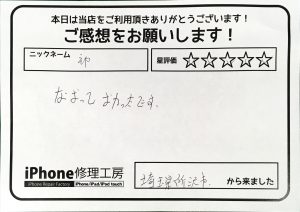 本日は当店をご利用頂きありがとうございます！
ご感想をお願いします！
ニックネーム
星評価 ☆☆☆☆☆
なおって よかったです.
iPhone修理工房
iPhone Repair Factory iPhone/iPad/iPod touch
埼玉県所沢市 から来ました